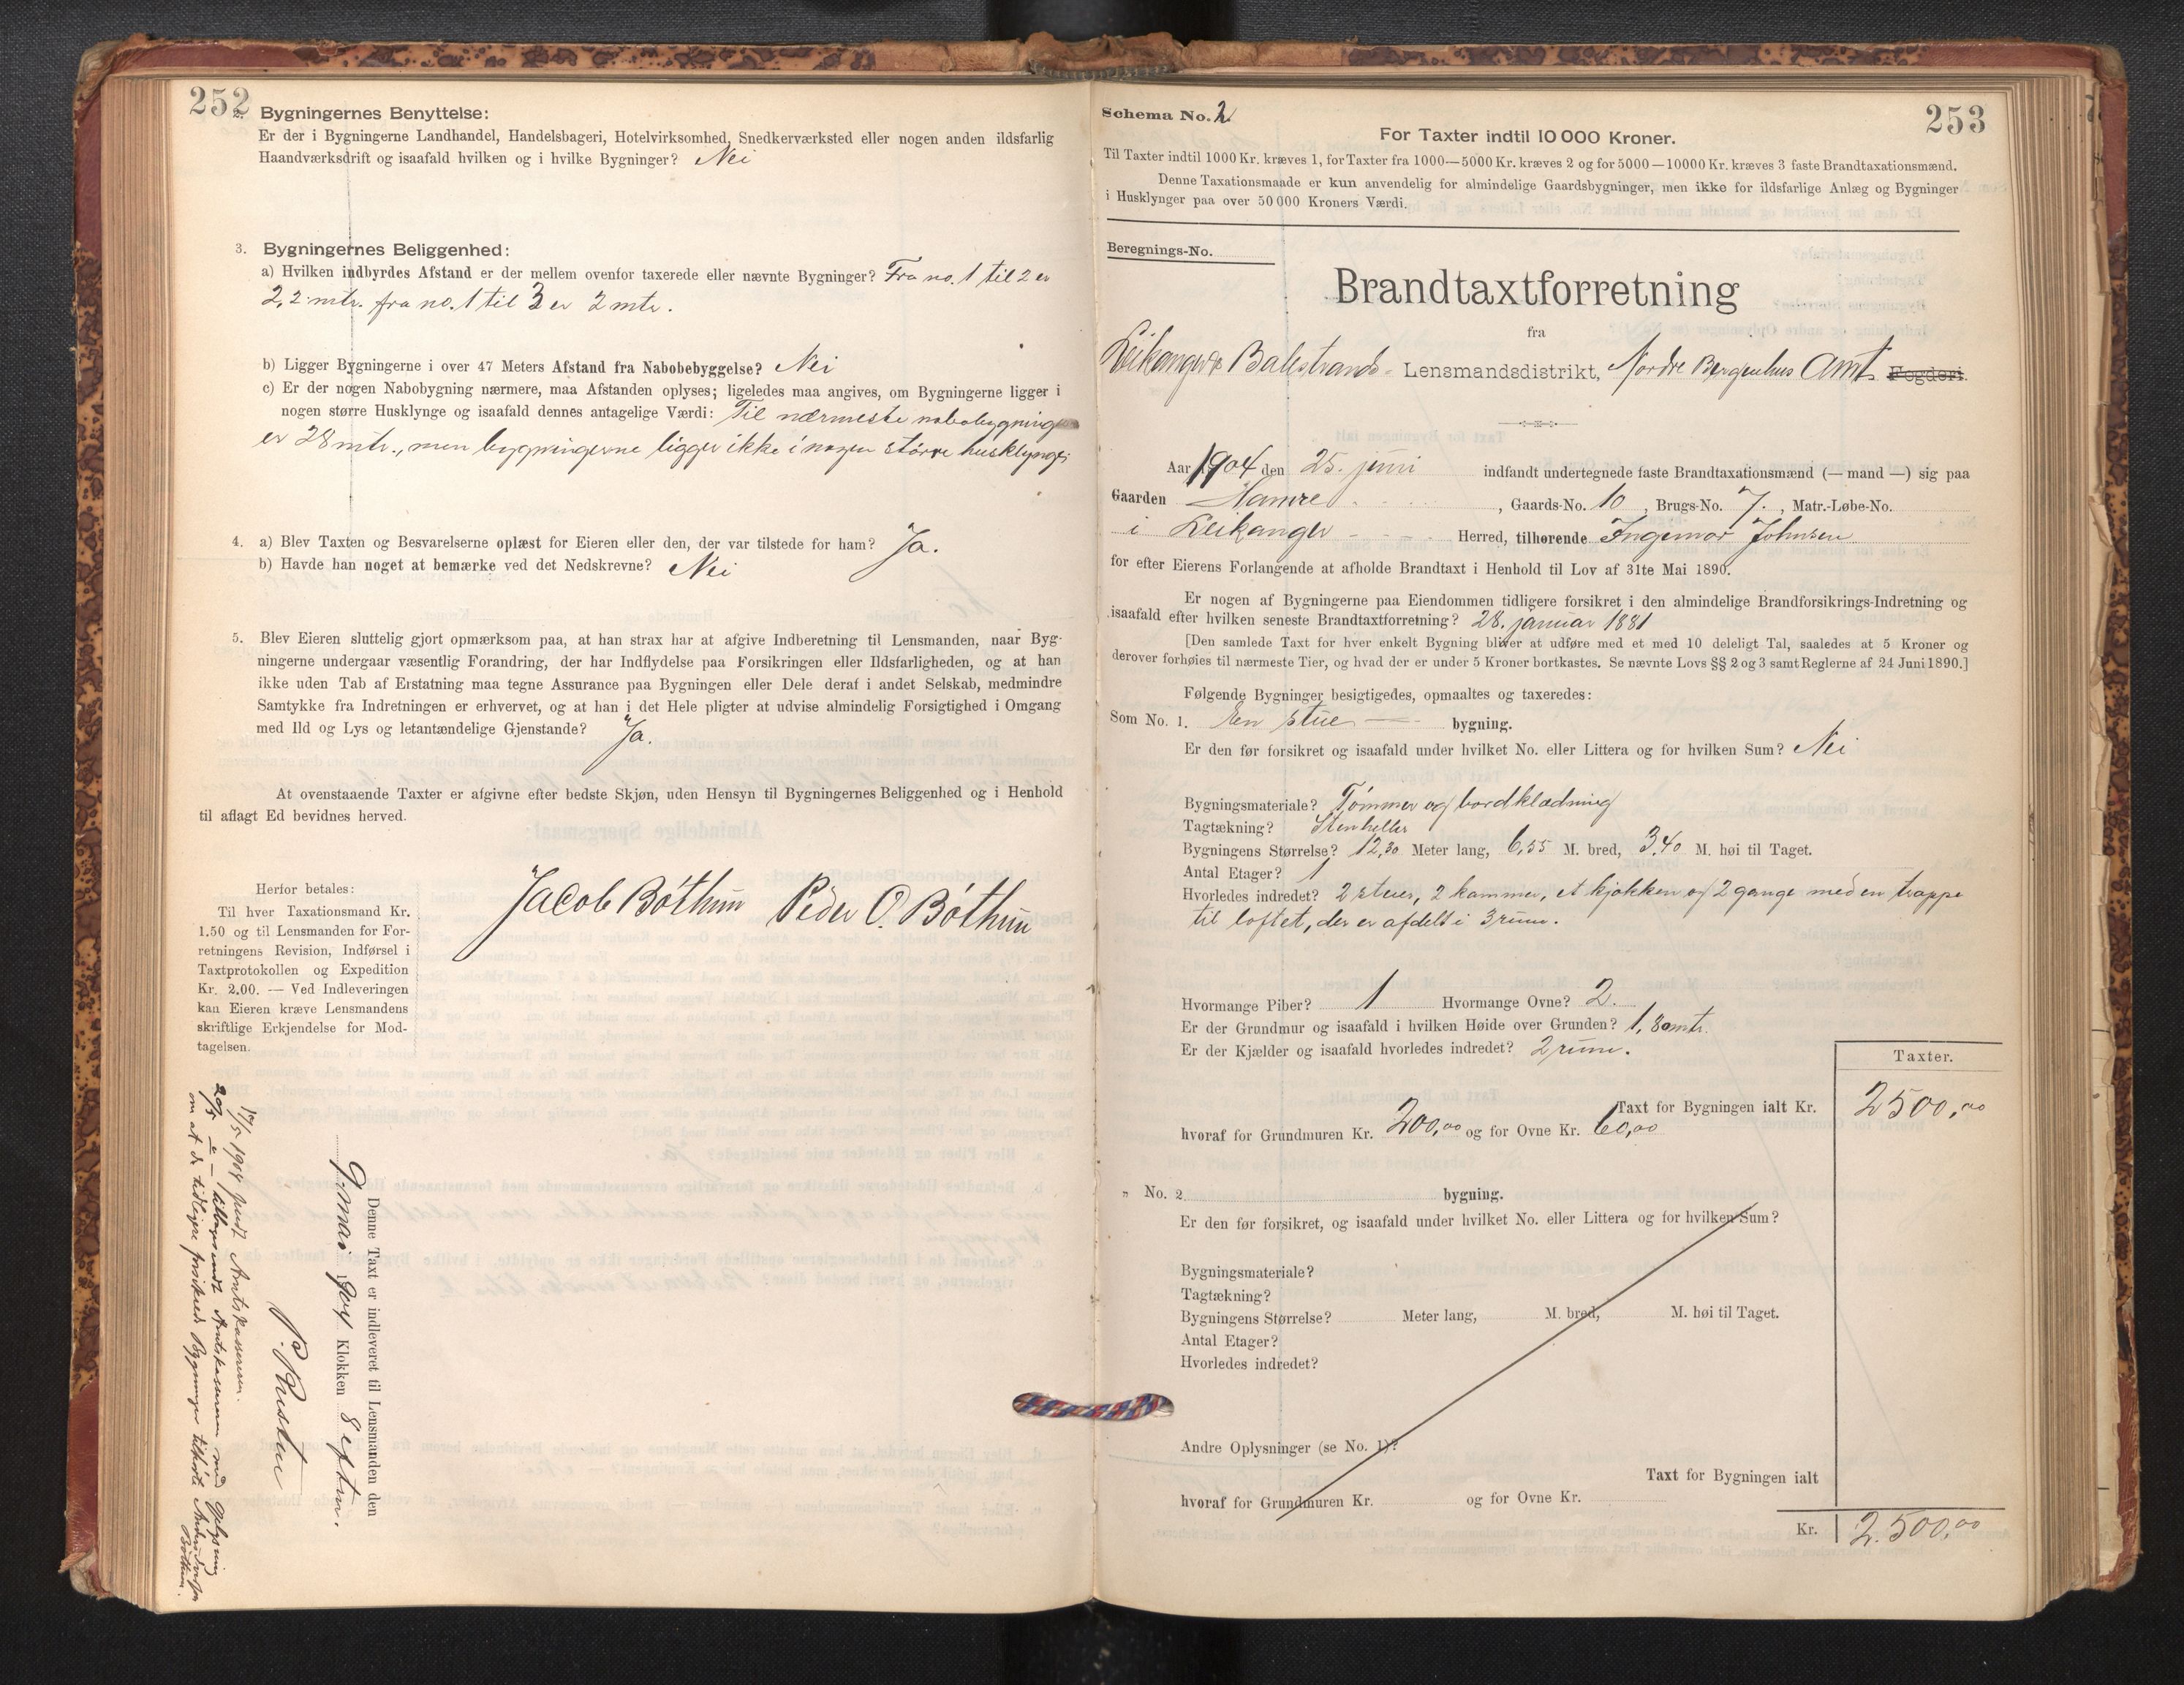 252
2. Bygningernes Benyttelse:
Er der i Bygningerne Landhandel, Handelsbageri, Hotelvirksomhed, Snedkerværksted eller nogen anden ildsfarlig
Haandværksdrift og isaafald hvilken og i hvilke Bygninger? Nei
3. Bygningernes Beliggenhed:
a) Hvilken indbyrdes Afstand er der mellem ovenfor taxerede eller nævnte Bygninger? Fra no. 1 til 2 er
2,2 mtr. fra no. 1 til 3 er 2 mtr.
b) Ligger Bygningerne i over 47 Meters Afstand fra Nabobebyggelse? Nei
c) Er der nogen Nabobygning nærmere, maa Afstanden oplyses; ligeledes maa angives, om Bygningerne ligger i
nogen større Husklynge og isaafald dennes antagelige Værdi: Til nærmeste nabobygning
er 28 mtr., men bygningerne ligger ikke i nogen større husklynge
4. a) Blev Taxten og Besvarelserne oplæst for Eieren eller den, der var tilstede for ham? Ja.
b) Havde han noget at bemærke ved det Nedskrevne? Nei
5. Blev Eieren sluttelig gjort opmærksom paa, at han strax har at afgive Indberetning til Lensmanden, naar Byg-
ningerne undergaar væsentlig Forandring, der har Indflydelse paa Forsikringen eller Ildsfarligheden, og at han
ikke uden Tab af Erstatning maa tegne Assurance paa Bygningen eller Dele deraf i andet Selskab, medmindre
Samtykke fra Indretningen er erhvervet, og at han i det Hele pligter at udvise almindelig Forsigtighed i Omgang
med Ild og Lys og letantændelige Gjenstande? Ja.
At ovenstaaende Taxter er afgivne efter bedste Skjøn, uden Hensyn til Bygningernes Beliggenhed og i Henhold
til aflagt Ed bevidnes herved.
Jacob Bøthun Peder O. Bøthun
Herfor betales:
Til hver Taxationsmand Kr.
1.50 og til Lensmanden for For-
retningens Revision, Indførsel i
Taxtprotokollen og Expedition
Kr. 2.00. — Ved Indleveringen
kan Eieren kræve Lensmandens
skriftlige Erkjendelse for Mod-
tagelsen.
Denne Taxt er indleveret til Lensmanden den
9 mai 1904 Klokken 8 eftm.
10/5 1904 sendt Amtskassereren.
20/5 tilbagesendt Amtskassereren med
om at de tidligere forsikrede Bygninger tilhørte
Bøthun.
253
Schema No. 2
For Taxter indtil 10 000 Kroner.
Til Taxter indtil 1000 Kr. kræves 1, for Taxter fra 1000—5000 Kr. kræves 2 og for 5000—10000 Kr. kræves 3 faste Brandtaxationsmænd.
Denne Taxationsmaade er kun anvendelig for almindelige Gaardsbygninger, men ikke for ildsfarlige Anlæg og Bygninger
i Husklynger paa over 50 000 Kroners Værdi.
Beregnings-No.
Brandtaxtforretning
fra
Leikanger & Balestrands Lensmandsdistrikt, Nordre Bergenhus Amt Fogderi.
Aar 1904 den 25. juni indfandt undertegnede faste Brandtaxationsmænd (— mand —) sig paa
Gaarden Hamre, Gaards-No. 10, Brugs-No. 7., Matr.-Løbe-No.
i Leikanger Herred, tilhørende Ingemar Johnsen
for efter Eierens Forlangende at afholde Brandtaxt i Henhold til Lov af 31te Mai 1890.
Er nogen af Bygningerne paa Eiendommen tidligere forsikret i den almindelige Brandforsikrings-Indretning og
isaafald efter hvilken seneste Brandtaxtforretning? 28. januar 1881
[Den samlede Taxt for hver enkelt Bygning bliver at udføre med et med 10 deleligt Tal, saaledes at 5 Kroner og
derover forhøies til nærmeste Tier, og hvad der er under 5 Kroner bortkastes. Se nævnte Lovs §§ 2 og 3 samt Reglerne af 24 Juni 1890.]
Følgende Bygninger besigtigedes, opmaaltes og taxeredes:
Som No. 1. En stue bygning.
Er den før forsikret og isaafald under hvilket No. eller Littera og for hvilken Sum? Nei
Bygningsmateriale? Tømmer og bordklædning
Tagtækning? Stenheller
Bygningens Størrelse? 12,30 Meter lang, 6,55 M. bred, 3,40 M. høi til Taget.
Antal Etager? 1
Hvorledes indredet? 2 stuer, 2 kammer, et kjøkken og 2 gange med en trappe
til loftet, der er afdelt i 3 rum.
Hvormange Piber? 1 Hvormange Ovne? 2.
Er der Grundmur og isaafald i hvilken Høide over Grunden? 1,80 mtr.
Er der Kjælder og isaafald hvorledes indredet? 2 rum.
Taxter.
Taxt for Bygningen ialt Kr. 2500,00
hvoraf for Grundmuren Kr. 200,00 og for Ovne Kr. 60,00
" No. 2 bygning.
Er den før forsikret, og isaafald under hvilket No. eller Littera og for hvilken Sum?
Bygningsmateriale?
Tagtækning?
Bygningens Størrelse? Meter lang, M. bred, M. høi til Taget.
Antal Etager?
Hvorledes indredet?
Andre Oplysninger (se No. 1)?
Taxt for Bygningen ialt
hvoraf for Grundmuren Kr. og for Ovne Kr.
Kr. 2.500,00